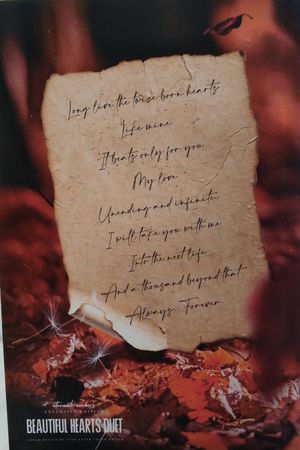 Long live the twice born hearts
Like mine
It beats only for you
My love
Unending and infinite
I will take you with me
Into the next life
And a thousand beyond that
Always Forever
eternal embers
EXCLUSIVE EDITION
BEAUTIFUL HEARTS DUET